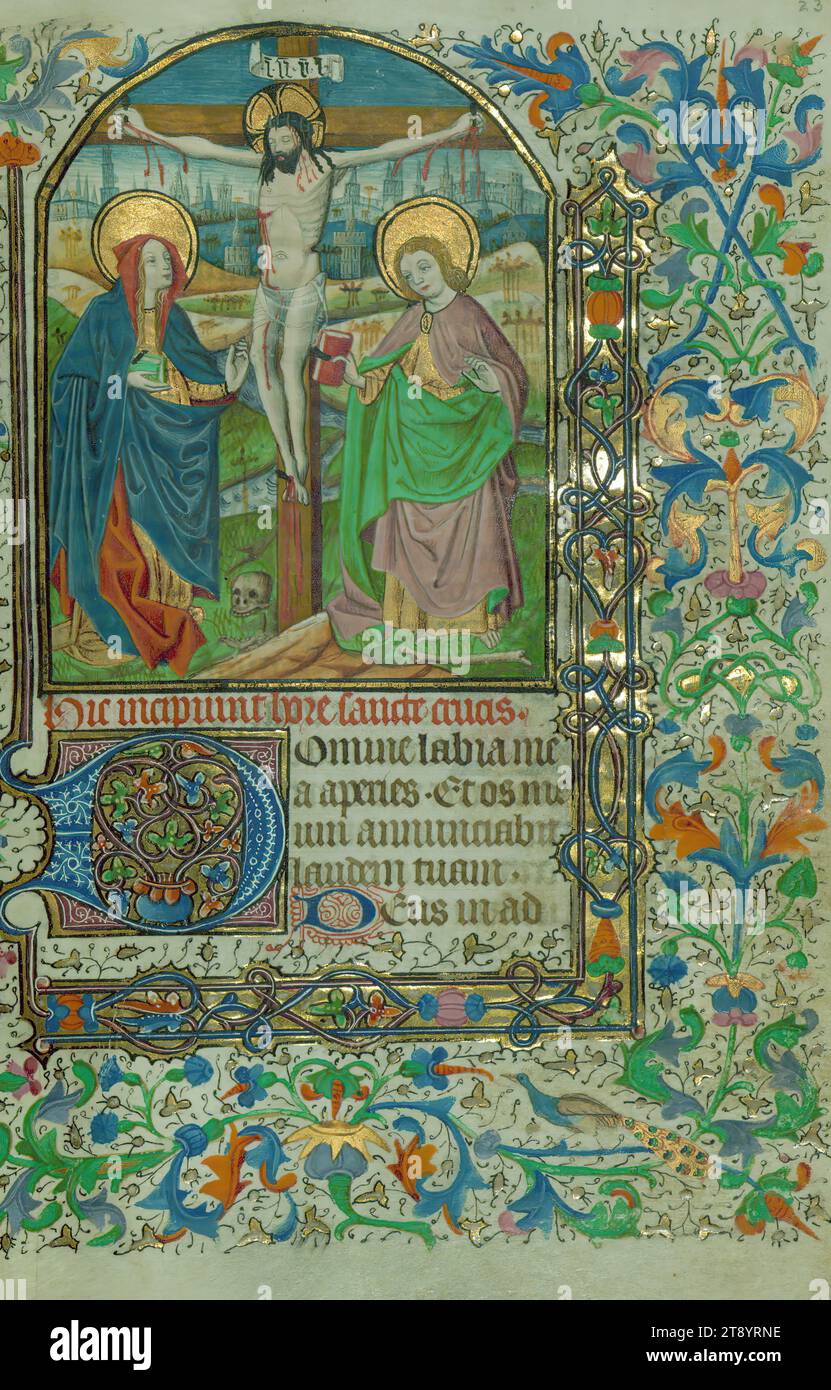 23
i.n.r.i
Hic incipiunt hore sancte crucis.
Domine labia me
a aperies. Et os me
um annunciabit
laudem tuam.
Deus in ad
alamy
alamy
Image ID: 2T8YRNE
www.alamy.com